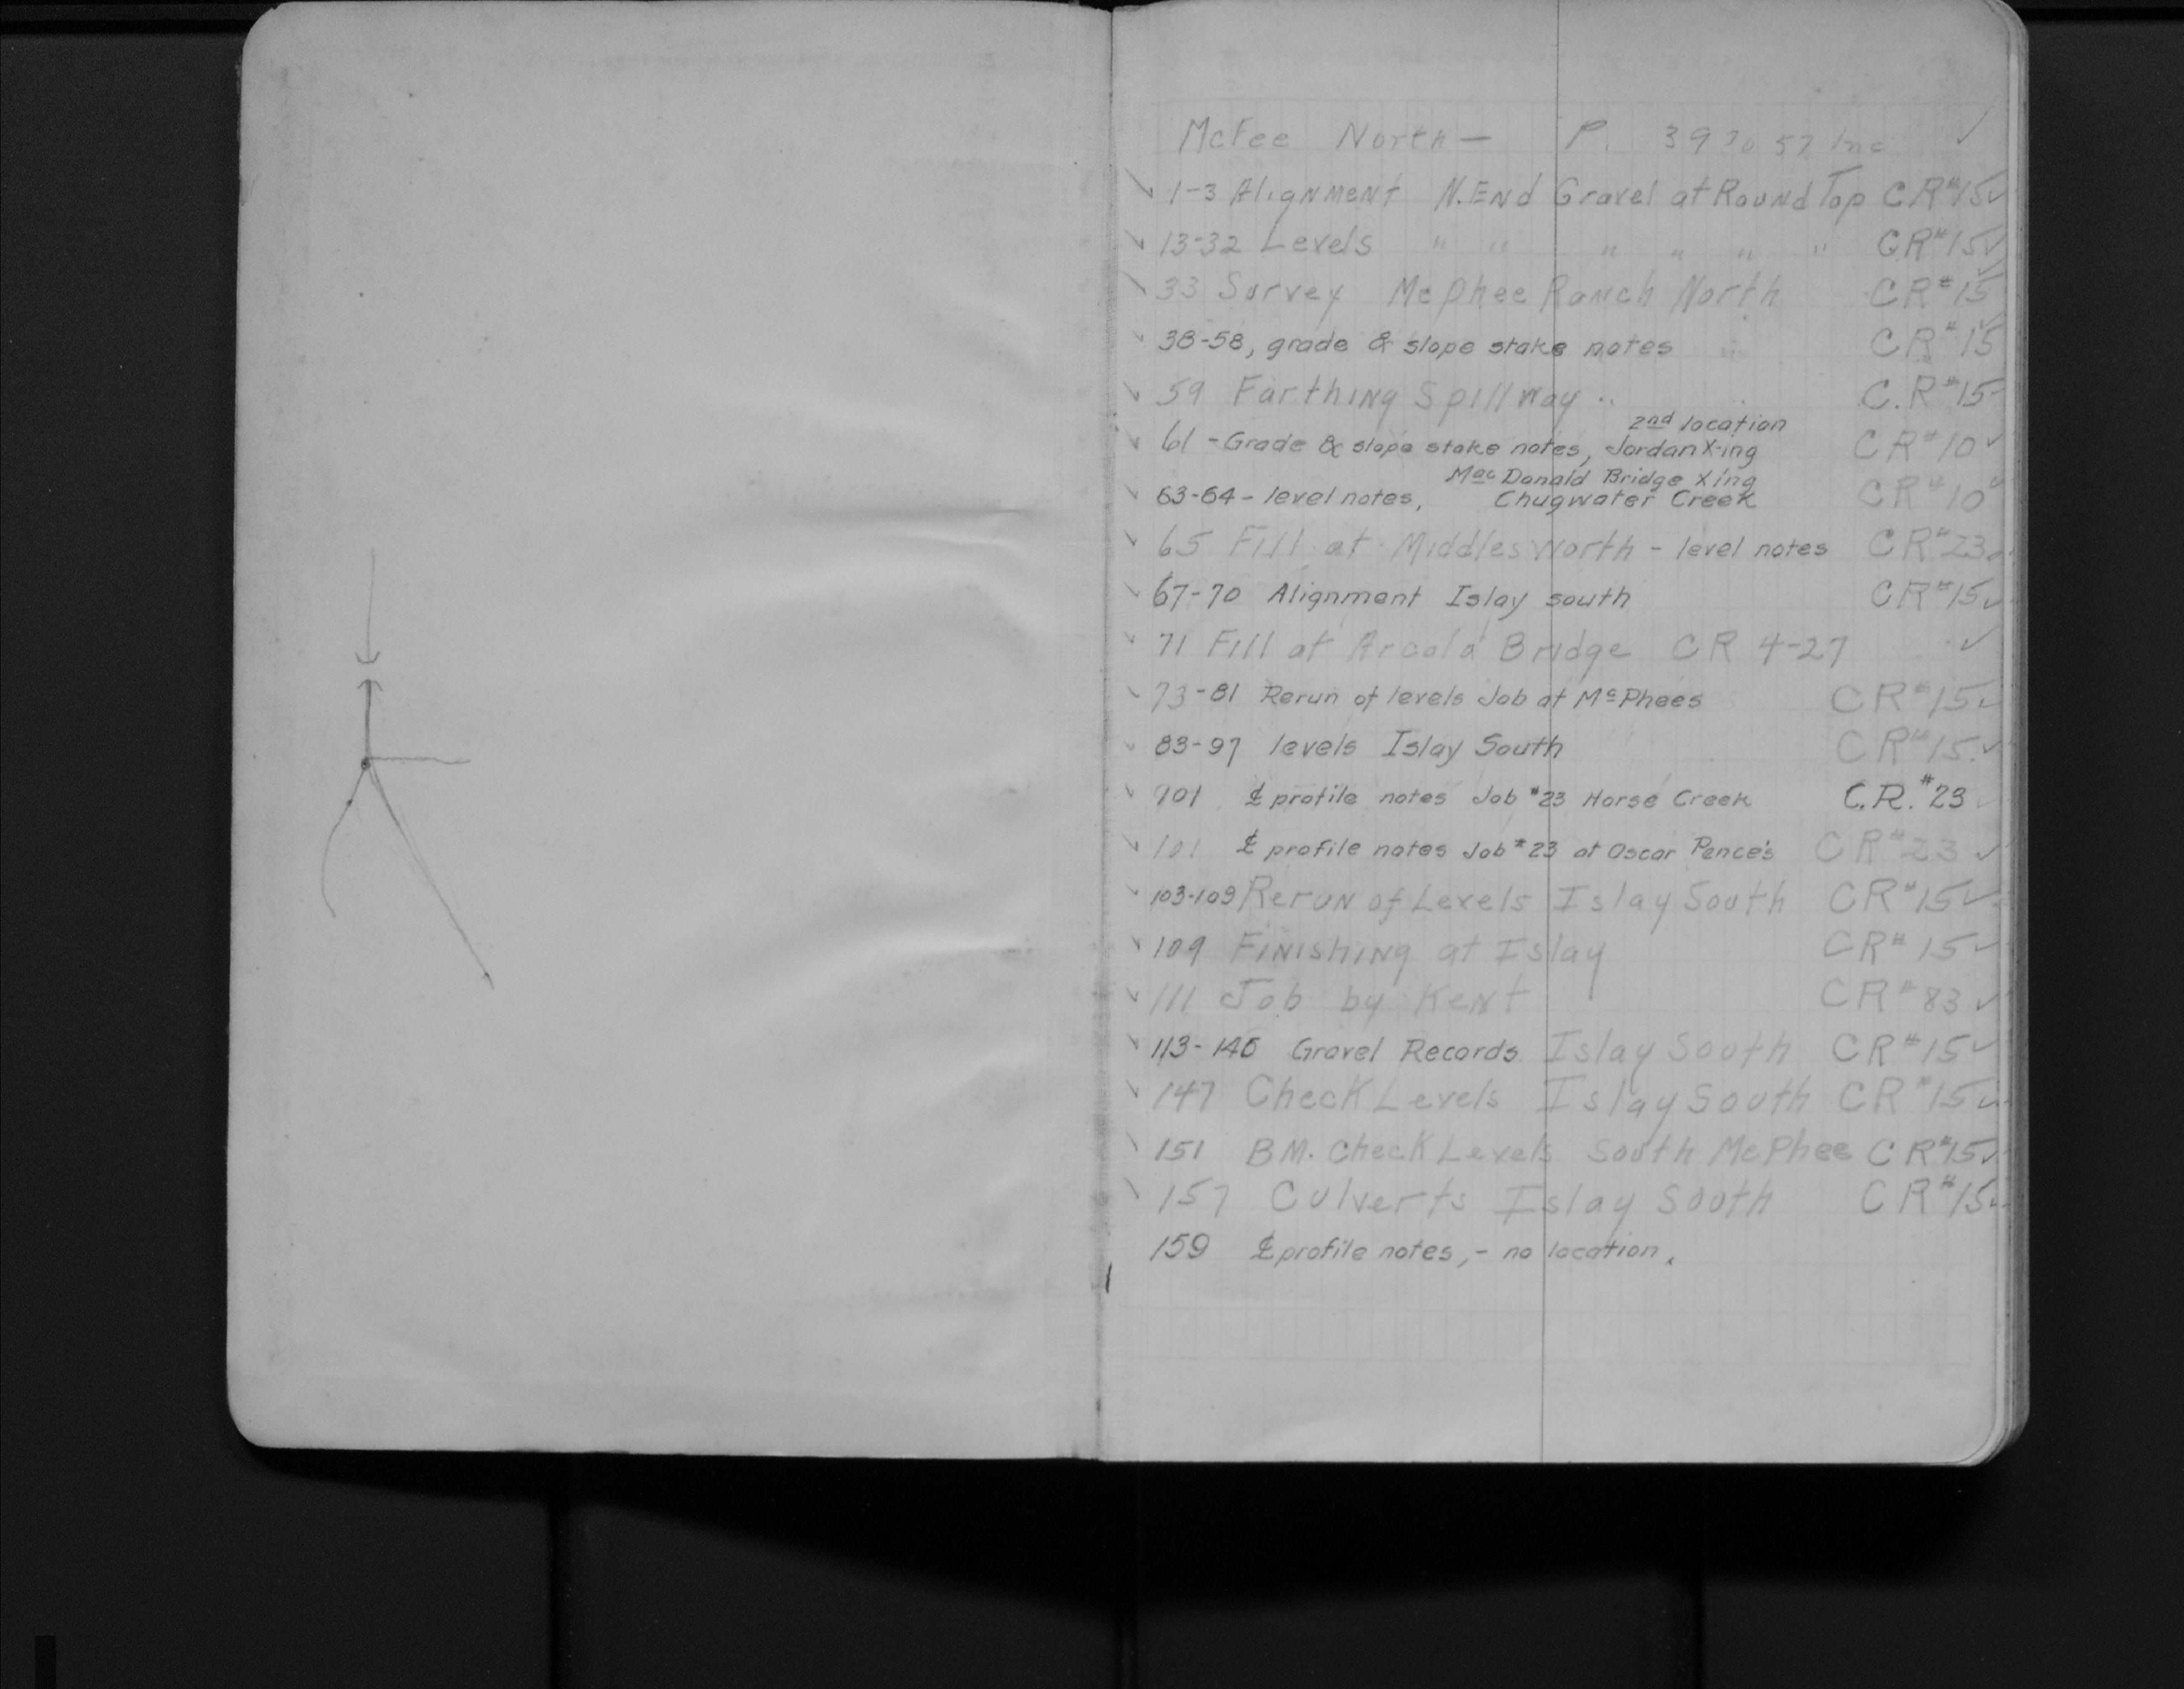 McFee North — P. 39 to 57 Inc ✓
✓ 1-3 Alignment N. End Gravel at Round Top CR#15 ✓
✓ 13-32 Levels " " " " " " CR#15 ✓
✓ 33 Survey McPhee Ranch North CR#15 ✓
✓ 38-58, grade & slope stake notes " CR#15 ✓
✓ 59 Farthing Spillway .. .. C.R#15
2nd location
✓ 61 - Grade & slope stake notes, Jordan X-ing CR#10 ✓
Mac Donald Bridge Xing
✓ 63-64 - level notes, Chugwater Creek CR#10 ✓
✓ 65 Fill at Middlesworth - level notes CR#23 ✓
✓ 67-70 Alignment Islay south CR#15 ✓
✓ 71 Fill at Arcola Bridge CR 4-27 ✓
✓ 73-81 Rerun of levels Job at McPhees CR#15 ✓
✓ 83-97 levels Islay South CR#15 ✓
✓ 101 ℄ profile notes Job #23 Horse Creek C.R.#23 ✓
✓ 101 ℄ profile notes Job #23 at Oscar Pence's CR#23 ✓
✓ 103-109 Rerun of Levels Islay South CR#15 ✓
✓ 109 Finishing at Islay CR#15 ✓
✓ 111 Job by Kent CR#83 ✓
✓ 113-146 Gravel Records Islay South CR#15 ✓
✓ 147 Check Levels Islay South CR#15 ✓
✓ 151 BM. Check Levels South McPhee CR#15 ✓
✓ 157 Culverts Islay South CR#15 ✓
159 ℄ profile notes, - no location.